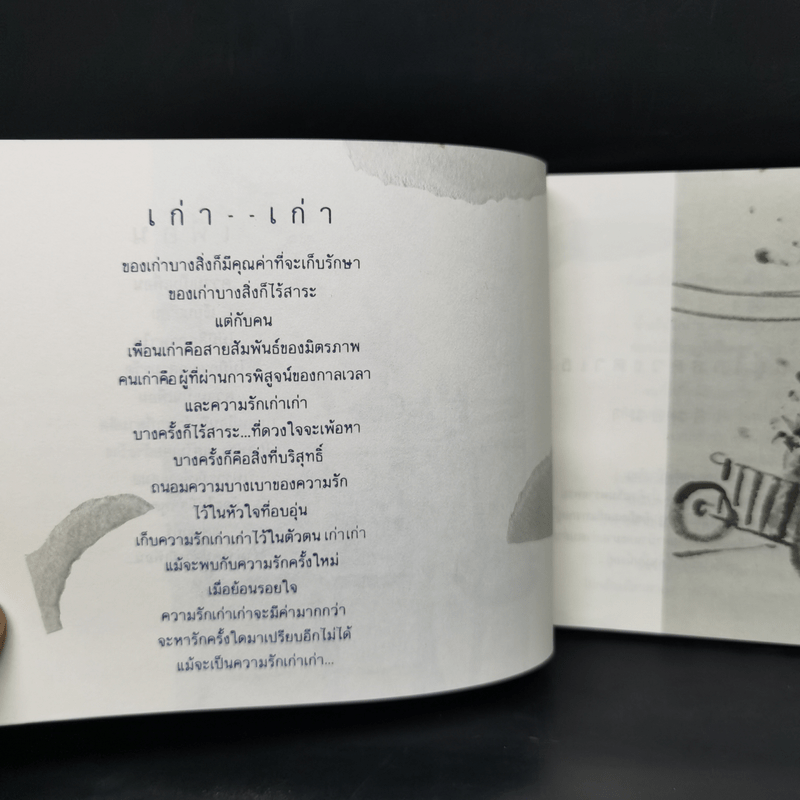 เก่า--เก่า
ของเก่าบางสิ่งก็มีคุณค่าที่จะเก็บรักษา
ของเก่าบางสิ่งก็ไร้สาระ
แต่กับคน
เพื่อนเก่าคือสายสัมพันธ์ของมิตรภาพ
คนเก่าคือผู้ที่ผ่านการพิสูจน์ของกาลเวลา
และความรักเก่าเก่า
บางครั้งก็ไร้สาระ...ที่ดวงใจจะเพ้อหา
บางครั้งก็คือสิ่งที่บริสุทธิ์
ถนอมความบางเบาของความรัก
ไว้ในหัวใจที่อบอุ่น
เก็บความรักเก่าเก่าไว้ในตัวตน เก่าเก่า
แม้จะพบกับความรักครั้งใหม่
เมื่อย้อนรอยใจ
ความรักเก่าเก่าจะมีค่ามากกว่า
จะหารักครั้งใดมาเปรียบอีกไม่ได้
แม้จะเป็นความรักเก่าเก่า...